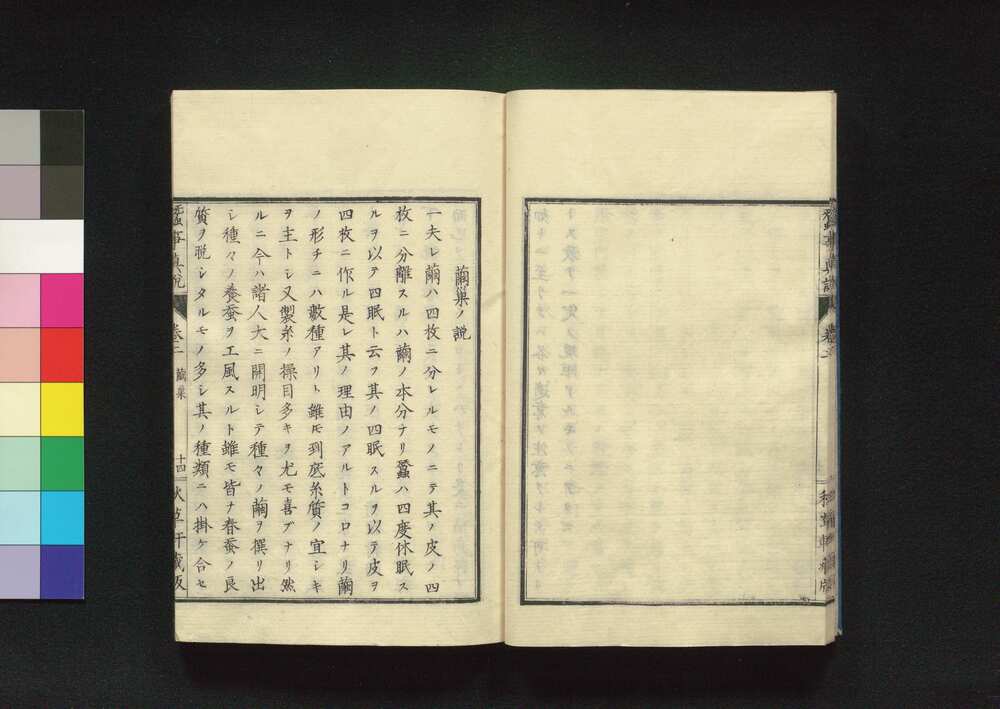 蠶事真説
卷二
繭巣ノ説
一夫レ繭ハ四枚ニ分レルモノニテ其ノ皮ノ四
枚ニ分離スルハ繭ノ本分ナリ蠶ハ四度休眠ス
ルヲ以テ四眠ト云フ其ノ四眠スルヲ以テ皮ヲ
四枚ニ作ル是レ其ノ理由ノアルトコロナリ繭
ノ形チニハ數種アリト雖𪜈到底糸質ノ宜シキ
ヲ主トシ又製糸ノ操目多キヲ尤モ喜ブナリ然
ルニ今ハ諸人大ニ開明シテ種々ノ繭ヲ撰リ出
シ種々ノ養蚕ヲ工風スルト雖モ皆ナ春蚕ノ良
質ヲ脱シタルモノ多シ其ノ種類ニハ掛ケ合セ
蠶事真説
卷二
繭巣
十四